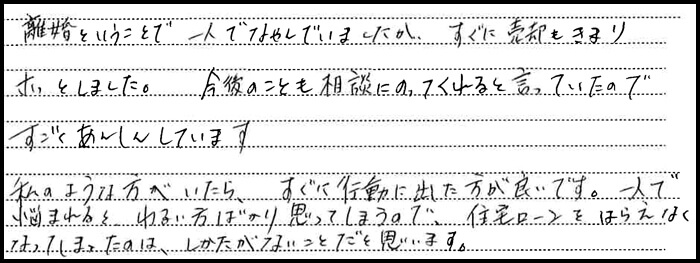 離婚ということで 一人でなやんでいましたが、すぐに売却もきまり
ホッとしました。 今後のことも相談にのってくれると言っていたので
すごくあんしんしています
私のような方がいたら、すぐに行動に出た方が良いです。一人で
悩まれると わるい方ばかり思ってしまうので、住宅ローンをはらえなく
なってしまったのは、しかたがないことだと思います。